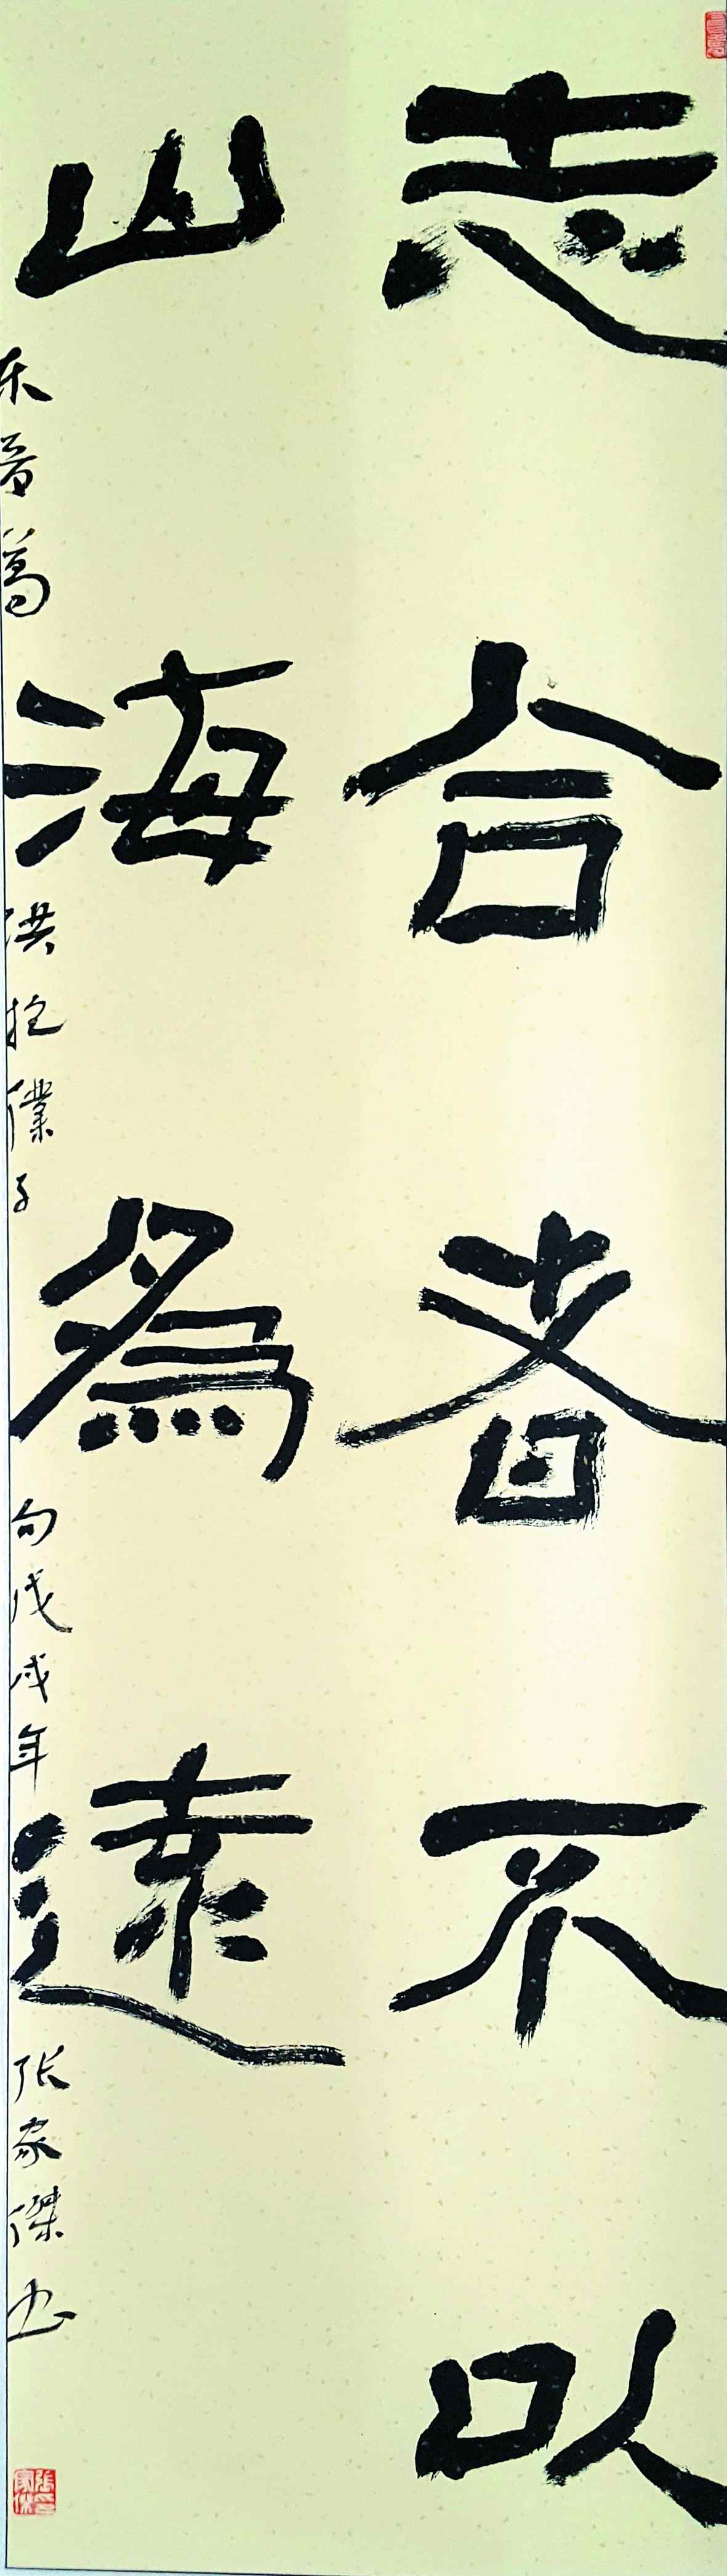 志合者不以
山海為遠
東晉葛洪抱樸子句戊戌年張家傑书